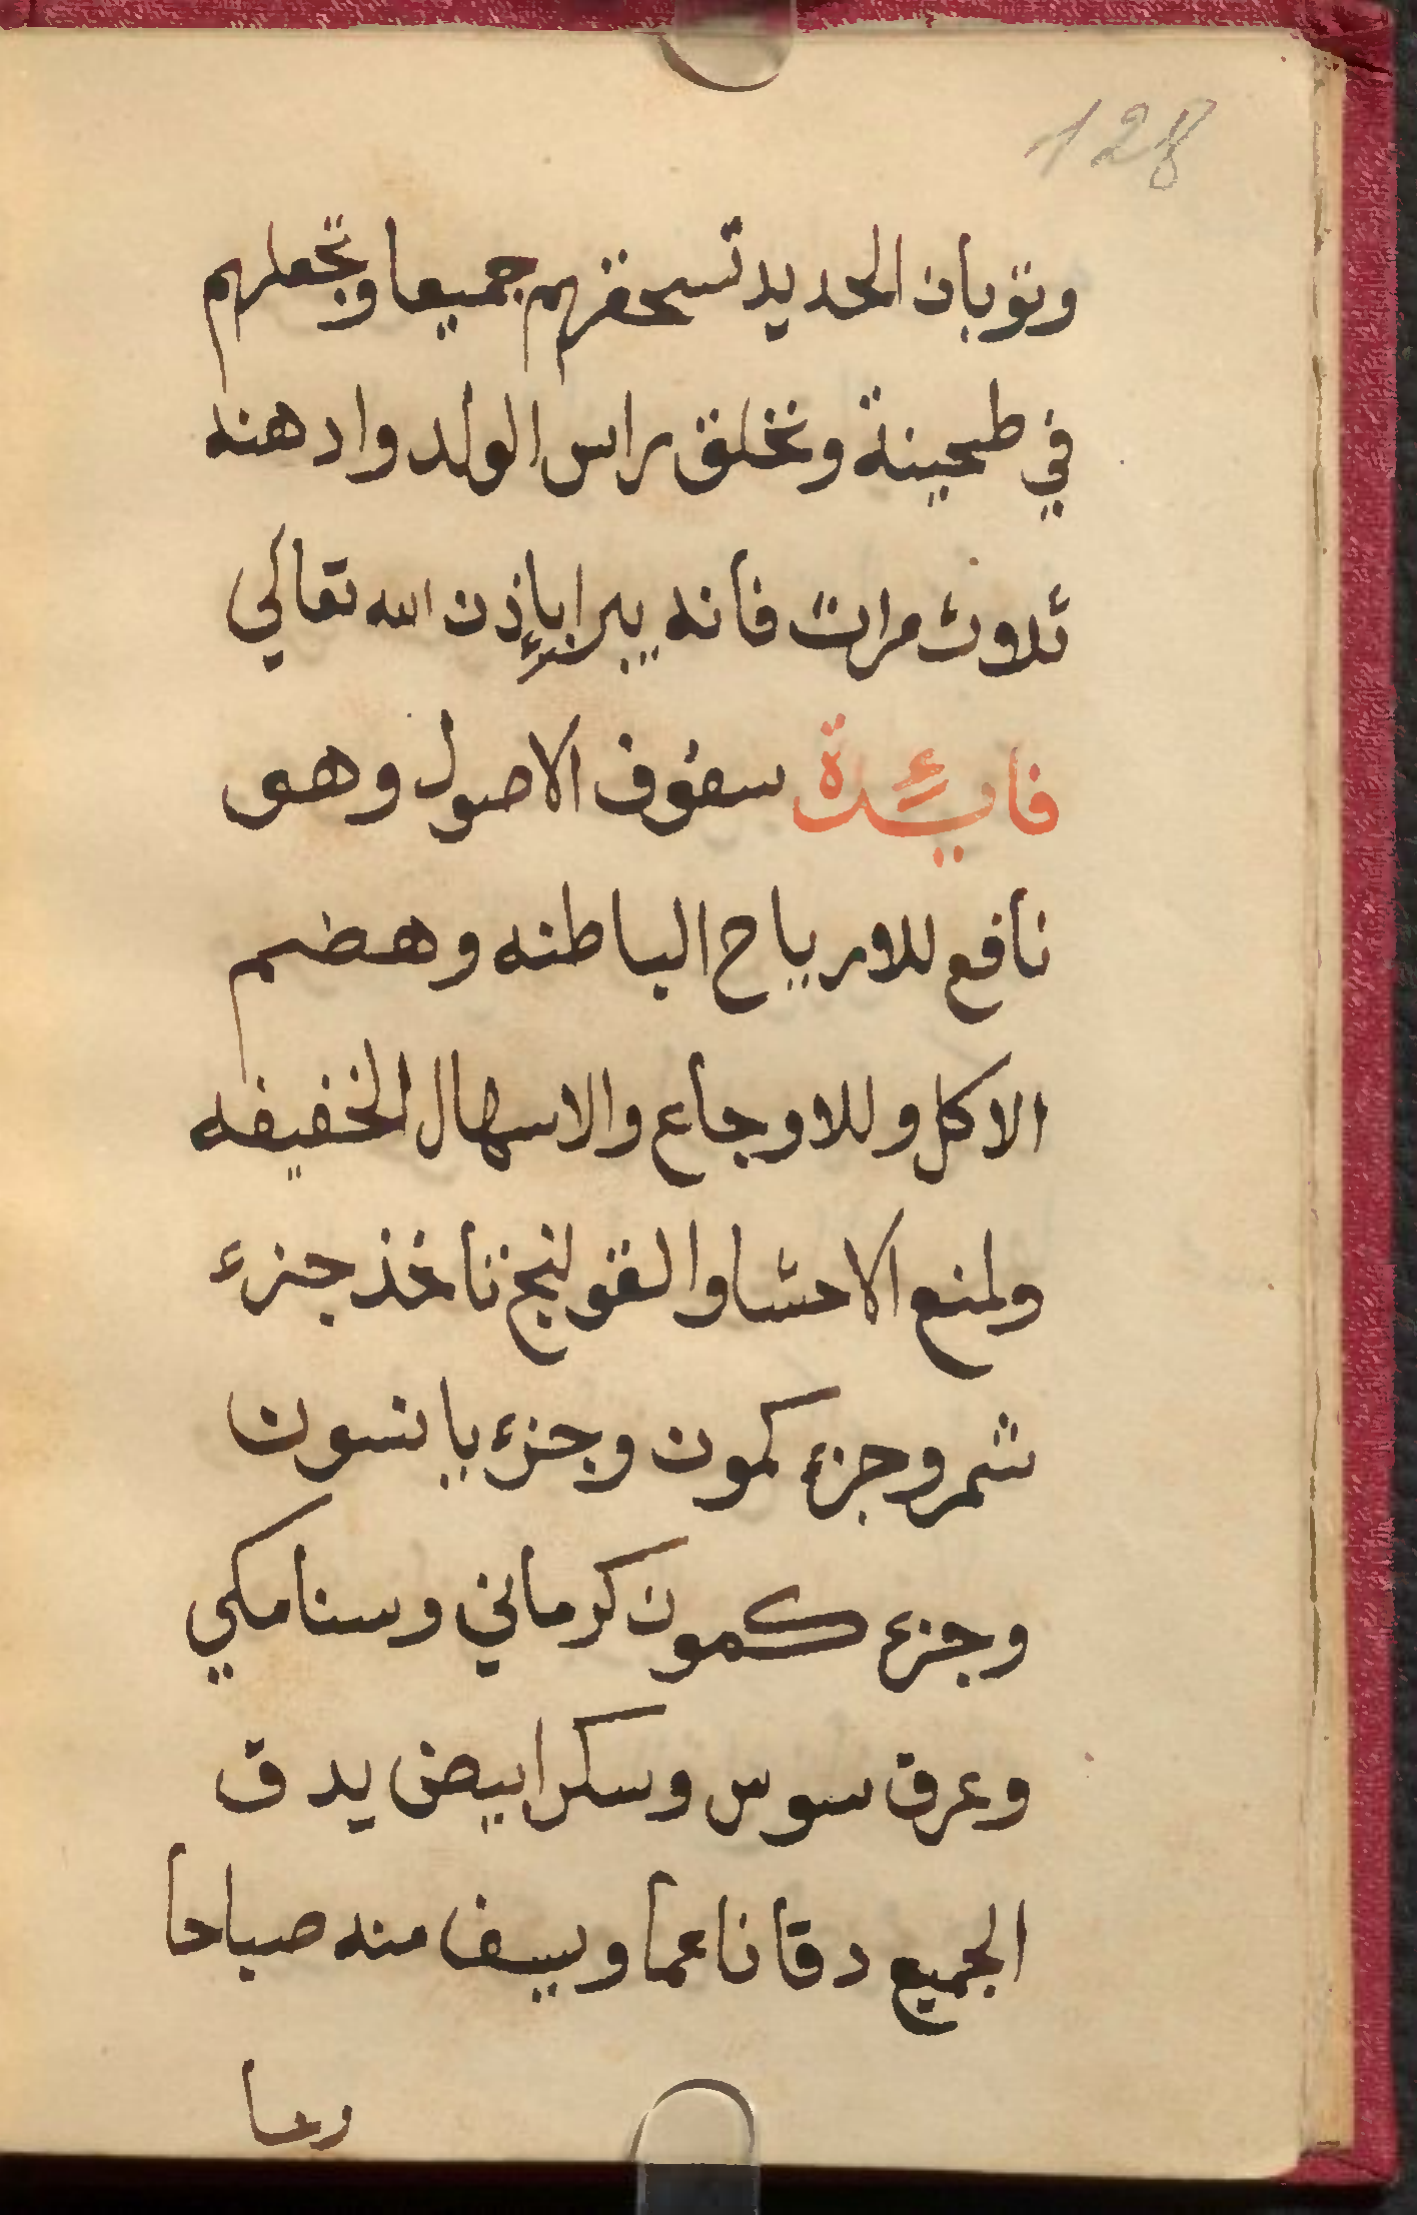 128
وتوبان الحديد تسحقهم جميعا وتجعلهم
في طحينة وتخلق راس الولد وادهنه
ثلاوث مرات فانه يبرا بإذن الله تعالي
فايئدة سفوف الاصول وهو
نافع للارياح الباطنه وهضم
الاكل وللاوجاع والاسهال الخفيفه
ولمنع الاحشا والقولنج تاخذ جزء
شمر وجزء كمون وجزء يانسون
وجزء كمون كرماني وسنامكي
وعرق سوس وسكر ابيض يدق
الجميع دقا ناعما ويسف منه صباحا